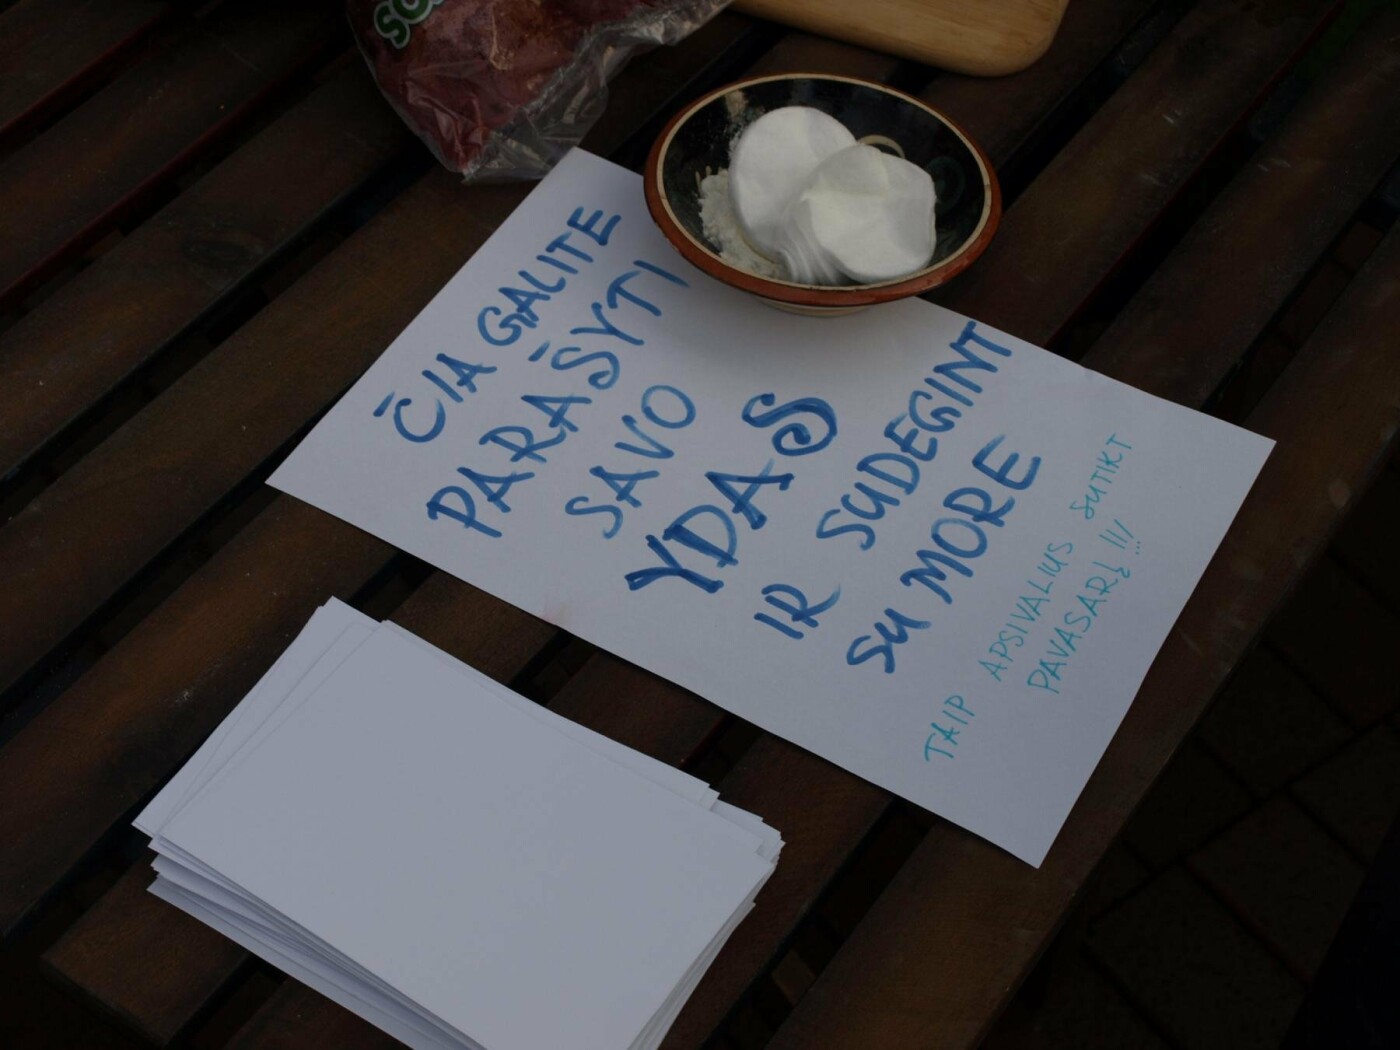 ČIA GALITE
PARAŠYTI
SAVO
YDAS
IR SUDEGINT
SU MORE
TAIP APSIVALIUS SUTIKT
PAVASARĮ !!!